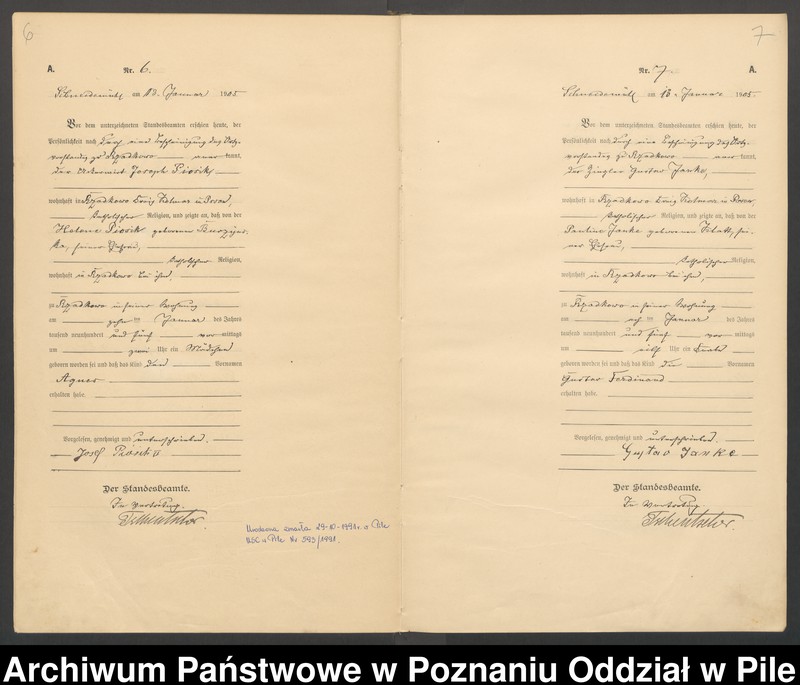 6
A.
Nr. 6.
Schneidemühl am 13. Januar 1905
Vor dem unterzeichneten Standesbeamten erschien heute, der
Persönlichkeit nach durch eine Bescheinigung des Orts-
vorstandes zu Rzadkowo kannt,
der Joseph Piosik,
wohnhaft in Rzadkowo Kreis Kolmar in Posen,
katholischer Religion, und zeigte an, daß von der
Helene Piosik geborenen
seiner Ehefrau,
katholischer Religion,
wohnhaft in Rzadkowo bei ihm,
zu Rzadkowo in seiner Wohnung
am zehnten Januar des Jahres
tausend neunhundert und fünf vormittags
um zwei Uhr ein Mädchen
geboren worden sei und daß das Kind den Vornamen
Agnes
erhalten habe.
Vorgelesen, genehmigt und unterschrieben.
Josef Piosik
Der Standesbeamte.
In Vertretung.
zmarła 29-10-1991r. w Pile
USC w Pile Nr 593/1991.
7
Nr. 7
A.
Schneidemühl am 13. Januar 1905
Vor dem unterzeichneten Standesbeamten erschien heute, der
Persönlichkeit nach durch eine Bescheinigung des Orts-
vorstandes zu Rzadkowo kannt,
der Ziegler Gustav Janke,
wohnhaft in Rzadkowo Kreis Kolmar in Posen,
katholischer Religion, und zeigte an, daß von der
Pauline Janke geborenen sei-
ner Ehefrau,
katholischer Religion,
wohnhaft in Rzadkowo bei ihm,
zu Rzadkowo in seiner Wohnung
am ten Januar des Jahres
tausend neunhundert und fünf vormittags
um Uhr ein Knabe
geboren worden sei und daß das Kind die Vornamen
Gustav Ferdinand
erhalten habe.
Vorgelesen, genehmigt und unterschrieben.
Gustav Janke
Der Standesbeamte.
In Vertretung.
Archiwum Państwowe w Poznaniu Oddział w Pile